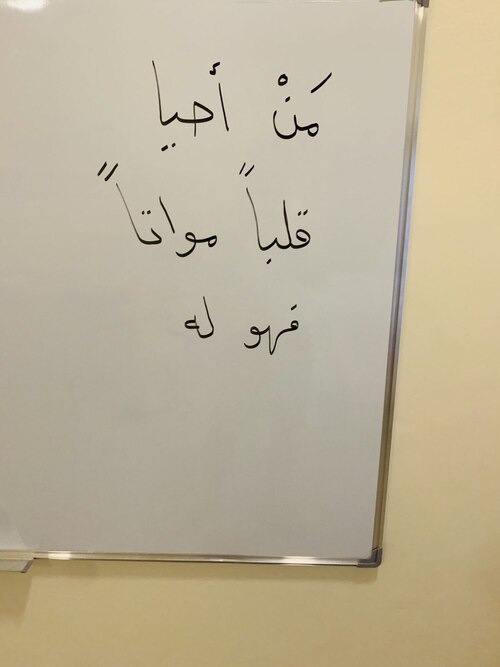 مَنْ أحيا
قلباً مواتاً
فهو له